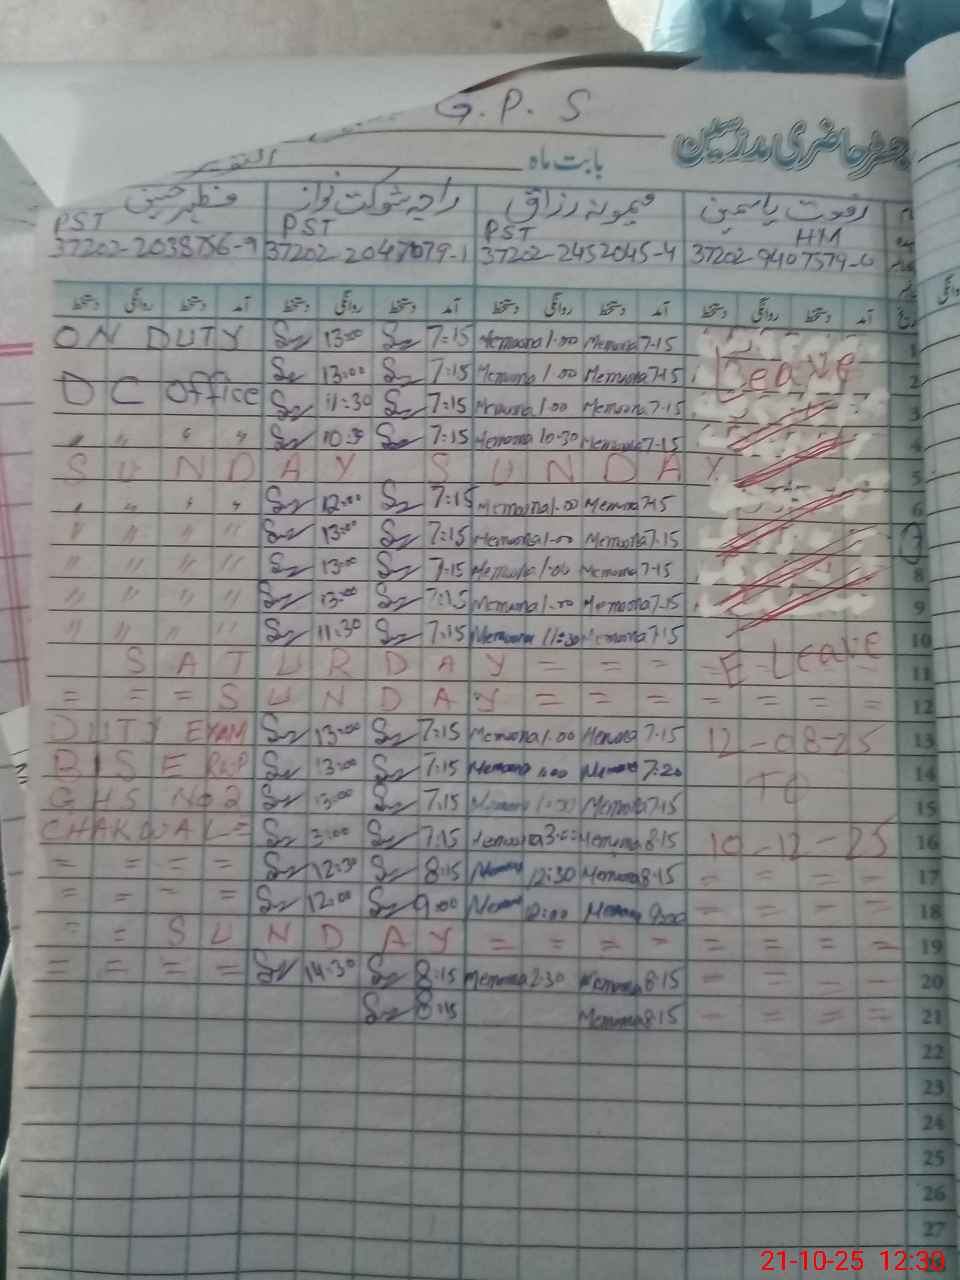 G. P. S
رجسٹر حاضری مدرسین
بابت ماہ
رفعت یاسمین میمونہ رزاق راجہ شوکت نواز منظر حسین
PST PST PST HM
37202-2038756-9 37202-2047079-1 37202-2452045-4
آمد دستخط روانگی دستخط آمد دستخط روانگی دستخط آمد دستخط روانگی دستخط آمد دستخط روانگی دستخط
ON DUTY 13:00 7:15 Memoona 1.00 Memoona 7-15 1
13:00 7:15 Memoona 1.00 Memoona 7-15 Leave 2
DC Office 11:30 7:15 Memoona 1.00 Memoona 7-15 3
" " " " 10:30 7:15 Memoona 10-30 Memoona 7-15 4
SUNDAY SUNDAY 5
" " " " 12:00 7:15 Memoona 1.00 Memoona 7-15 6
" " " " 13:00 7:15 Memoona 1.00 Memoona 7-15 7
" " " " 13:00 7:15 Memoona 1.00 Memoona 7-15 8
" " " " 13:00 7:15 Memoona 1.00 Memoona 7-15 9
" " " " 11:30 7:15 Memoona 11:30 Memoona 7-15 10
SATURDAY = = = = E-Leave 11
= = = SUNDAY = = = = = = = 12
DUTY EXAM 13:00 7:15 Memoona 1.00 Memoona 7-15 12-08-25 13
BISE RWP 13:00 7:15 Memoona 1.00 7:20 TO 14
GHS No 2 13:00 7:15 Memoona Memoona 7-15 15
CHAKWAL = 3:00 7:15 Memoona 3:00 Memoona 8-15 10-12-25 16
= = = = 12:30 8:15 12:30 Memoona 8-15 = = = = 17
= = = = 12:00 9:00 12:00 9:00 = = = = 18
= = SUNDAY = = = = = = = = 19
= = = = 14:30 8:15 Memoona 2:30 Memoona 8-15 = = = = 20
8:15 Memoona 8-15 = = = = 21
22
23
24
25
26
27
21-10-25 12:30